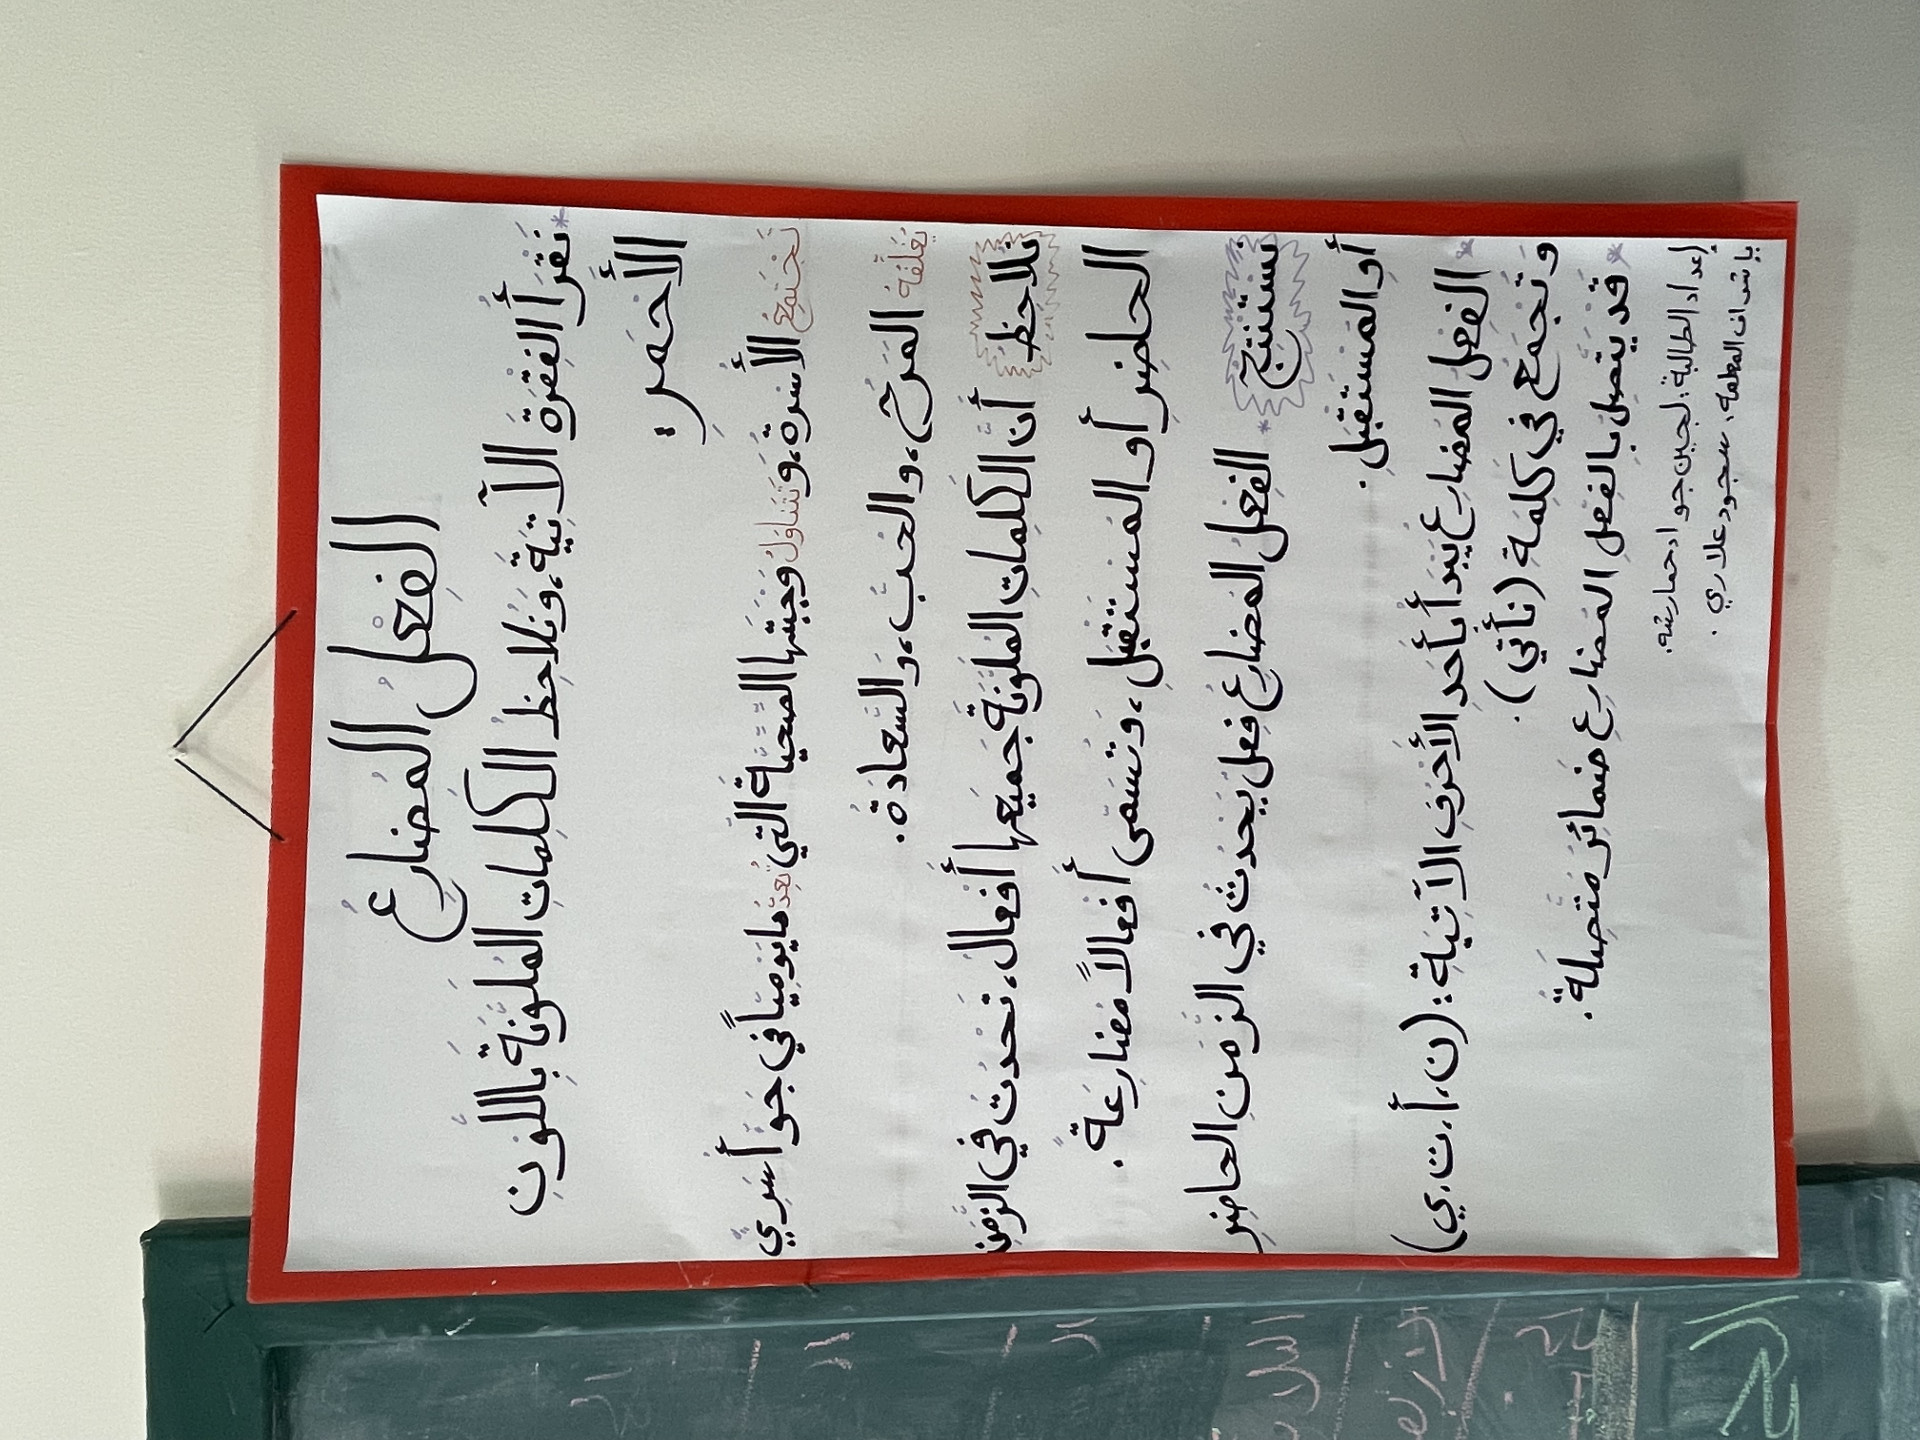 الفِعْلُ المُضارِعُ
* نَقْرَأُ الفِقْرَةَ الآتِيَةَ، وَنُلاحِظُ الكَلِماتِ المُلَوَّنَةَ بِاللَّوْنِ
الأَحْمَرِ:
تَجْتَمِعُ الأُسْرَةُ، وَتَتَناوَلُ وَجْبَتَها الصِّحِّيَّةَ الَّتي تُعِدُّها يَوْمِيّاً في جَوٍّ أُسَرِيٍّ
يُغَلِّفُهُ المَرَحُ، والحُبُّ، وَالسَّعادَةُ.
نُلاحِظُ أَنَّ الكَلِماتِ المُلَوَّنَةَ جَميعَها أَفْعالٌ، تَحْدُثُ في الزَّمَنِ
الحاضِرِ أَو المُسْتَقْبَلِ، وَتُسَمّى أَفْعالاً مُضارِعَةً.
نَسْتَنْتِجُ * الفِعْلُ المُضارِعُ فِعْلٌ يَحْدُثُ في الزَّمَنِ الحاضِرِ
أَوِ المُسْتَقْبَلِ.
* الفِعْلُ المُضارِعُ يَبْدَأُ بِأَحَدِ الأَحْرُفِ الآتِيَةِ: (ن، أ، ت، ي)
وَتُجْمَعُ في كَلِمَةِ (نَأْتي).
* قَدْ يَتَّصِلُ بِالفِعْلِ المُضارِعِ ضَمائِرُ مُتَّصِلَةٌ.
إعداد الطالبة: لجين جواد حمارشه.
بإشراف المعلمة: سجود علاري.